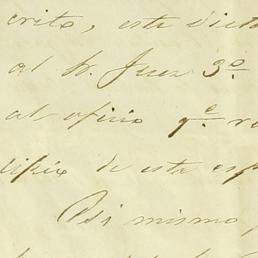 crito, este dicta
al Sr. Juez 3º
al oficio q.e re
de este esp
Asi mismo